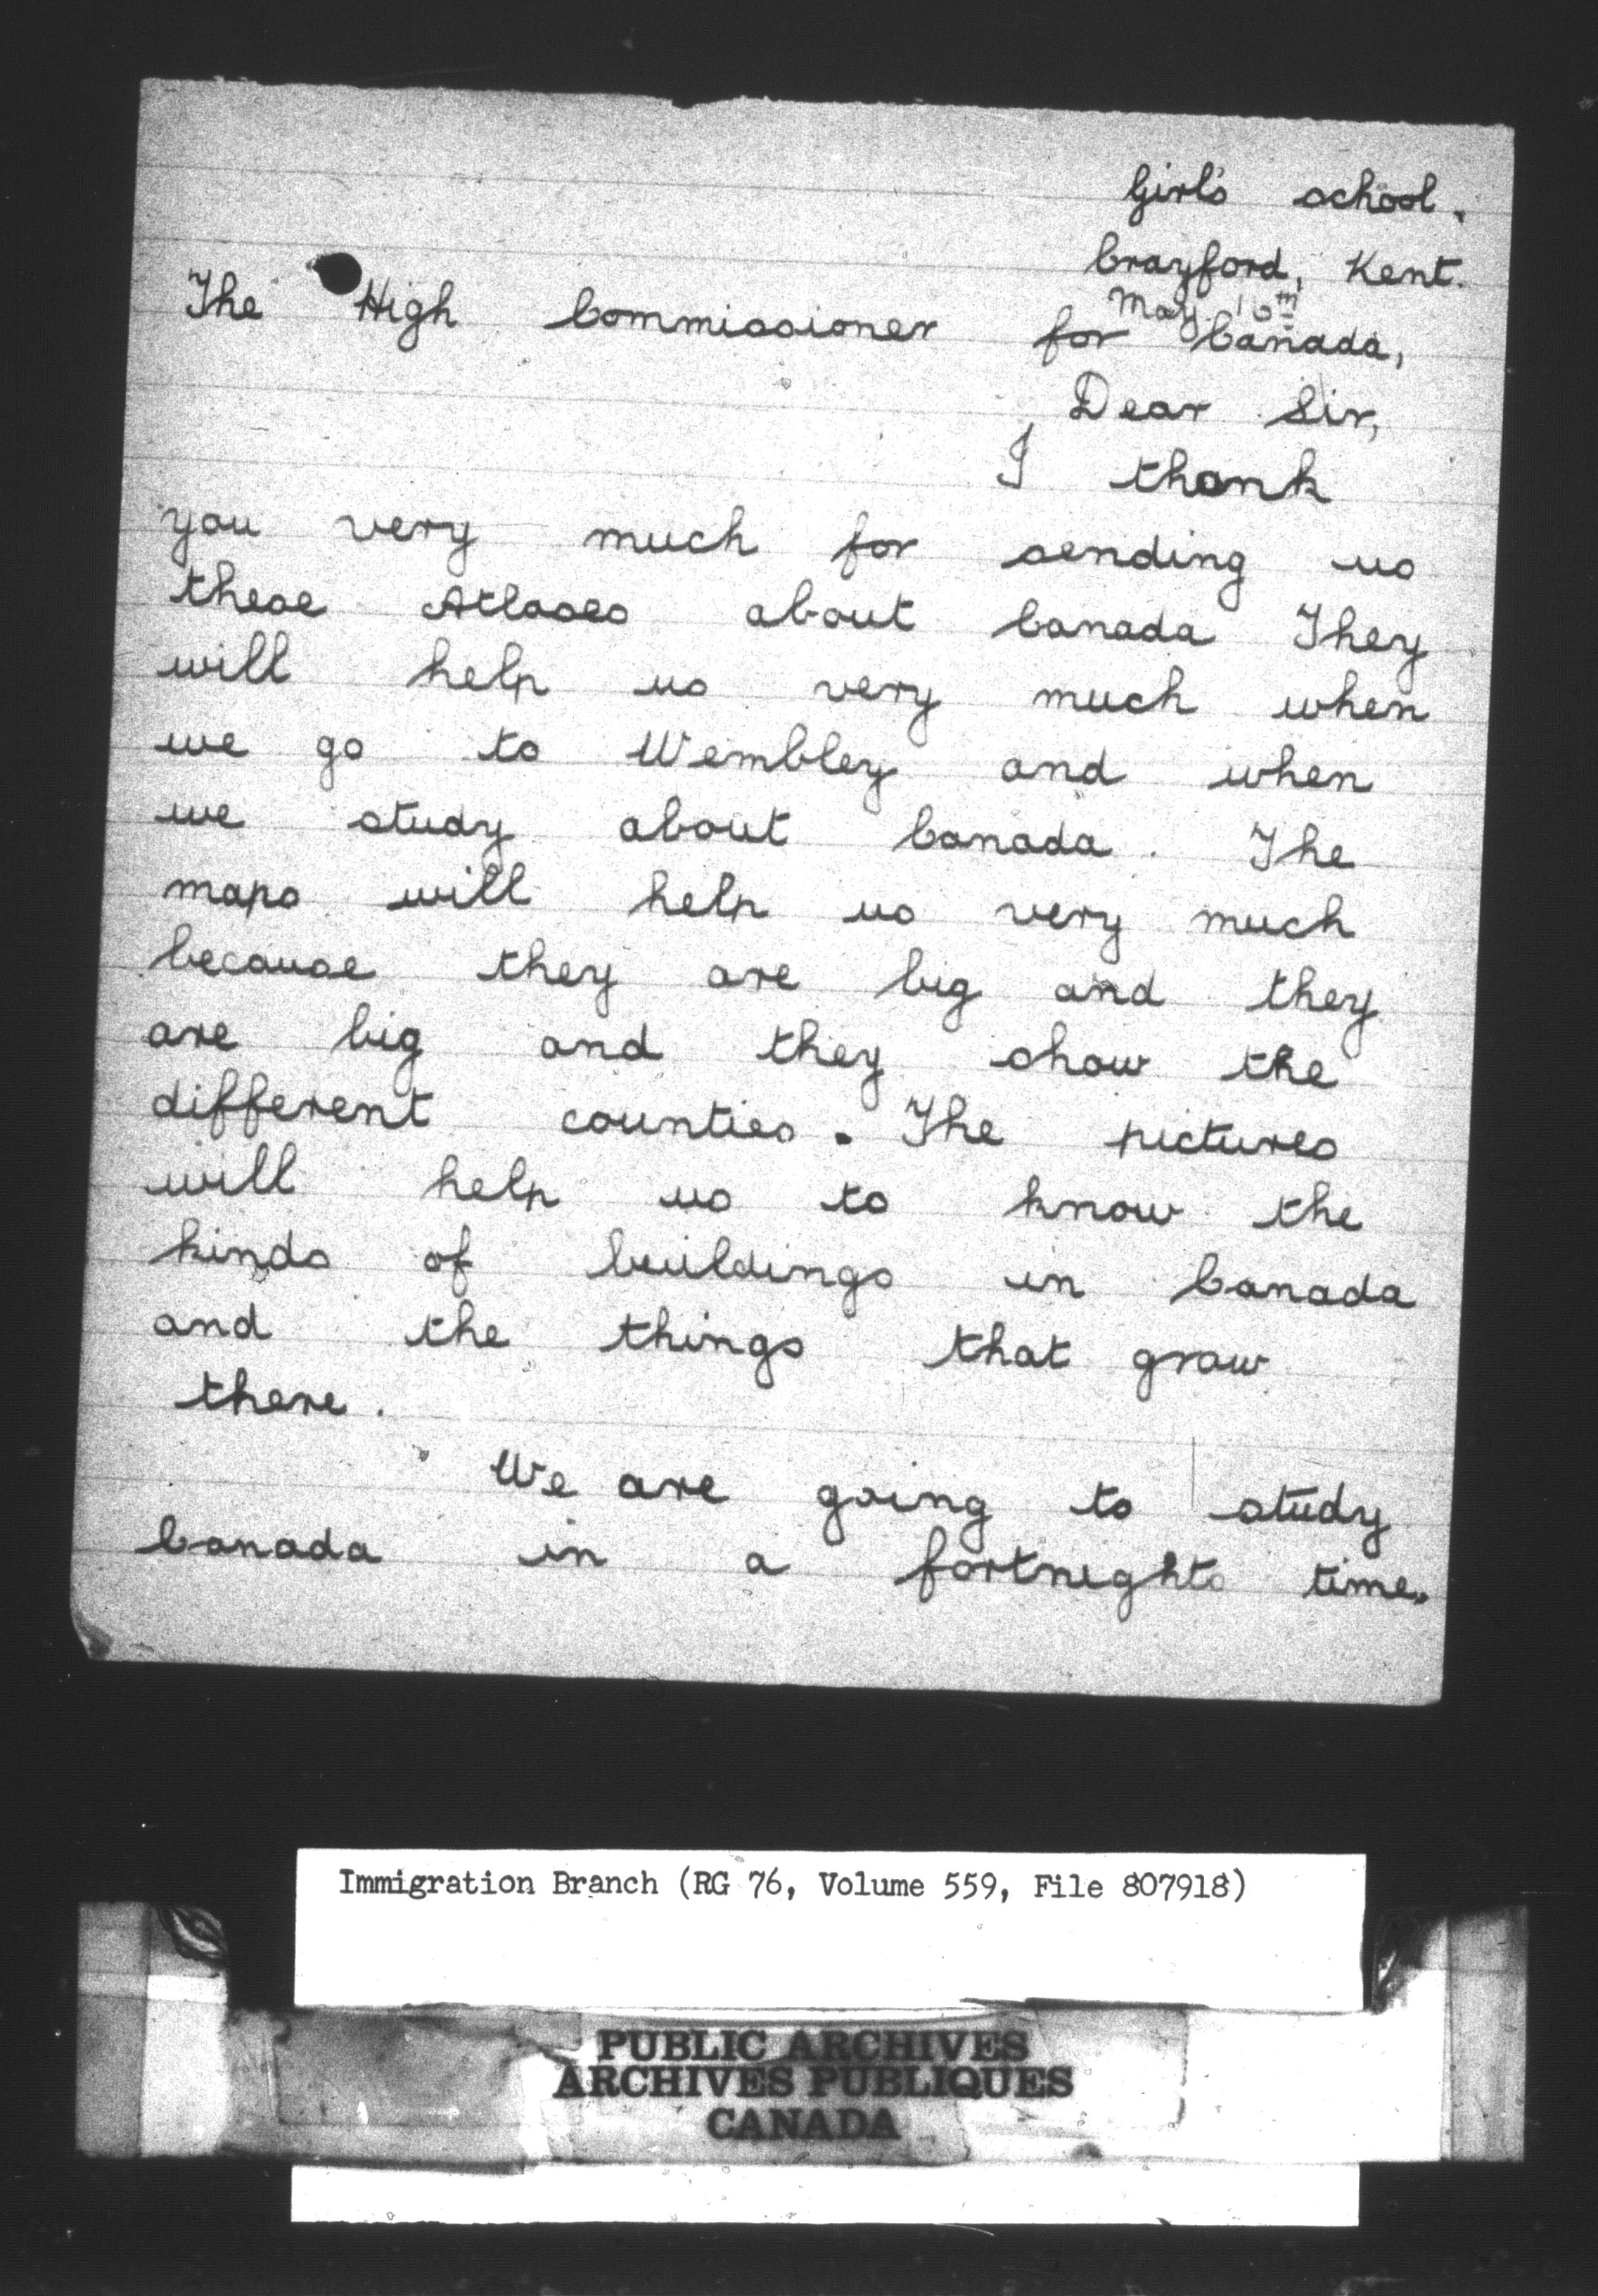 Girl's school.
Crayford, Kent.
May. 10th
The High Commissioner for Canada,
Dear Sir,
I thank
you very much for sending us
these Atlases about Canada They
will help us very much when
we go to Wembley and when
we study about Canada. The
maps will help us very much
because they are big and they
are big and they show the
different counties. The pictures
will help us to know the
kinds of buildings in Canada
and the things that grow
there.
We are going to study
Canada in a fortnights time.
Immigration Branch (RG 76, Volume 559, File 807918)
PUBLIC ARCHIVES
ARCHIVES PUBLIQUES
CANADA